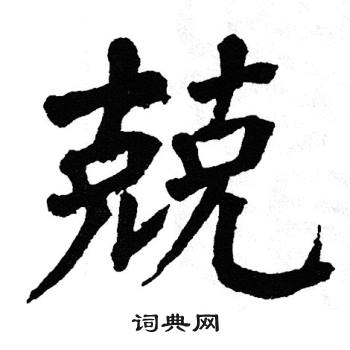 兢
词典网